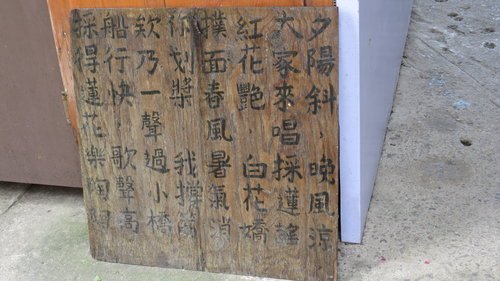 夕陽斜，晚風涼
大家來唱採蓮謠
紅花艷，白花嬌
撲面春風暑氣消
你划槳 我撐篙
欸乃一聲過小橋
船行快，歌聲高
採得蓮花樂陶陶